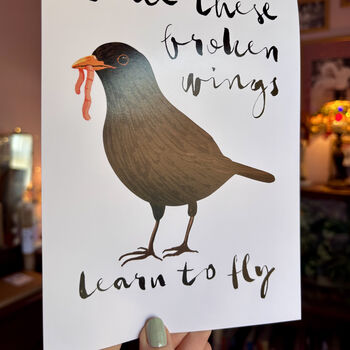 these
broken
wings
learn to fly